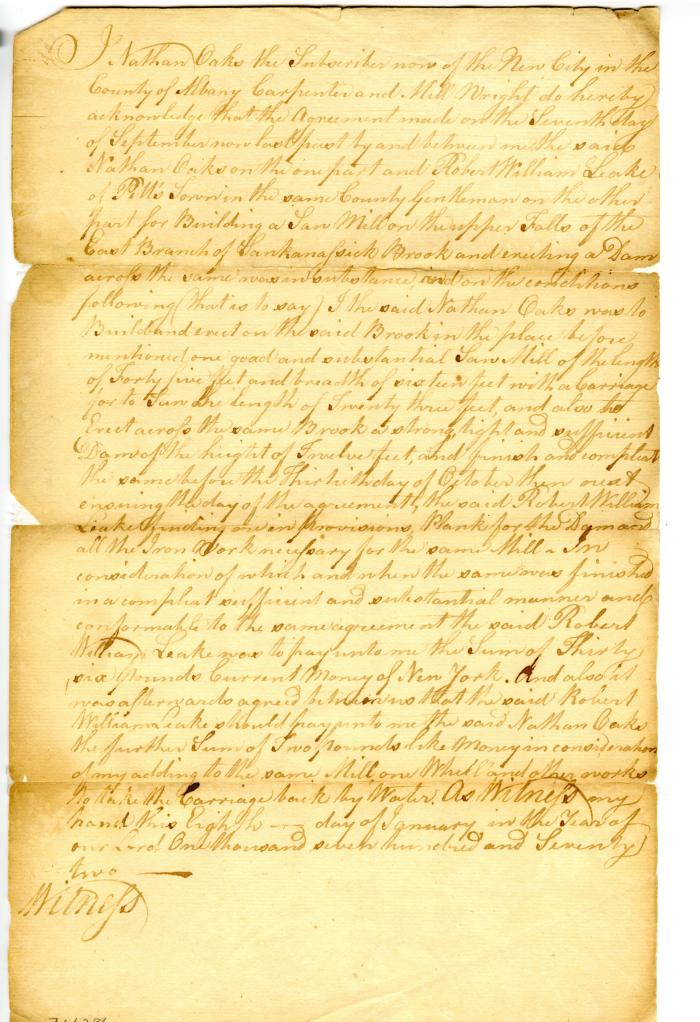 I Nathan Oaks the Subscriber now of the New City in the
County of Albany Carpenter and Mill Wright do hereby
acknowledge that the Agreement made on the Seventh day
of September now last past by and between me the said
Nathan Oaks on the one part and Robert William Leake
of Pitt's Town in the same County Gentleman on the other
part for Building a Saw Mill on the upper Falls of the
East Branch of Brook and erecting a Dam
across the same was in substance, and on the conditions
following (that is to say) I the said Nathan Oaks was to
Build and erect on the said Brook in the place before
mentioned one good and substantial Saw Mill of the length
of Forty five feet and breadth of sixteen feet with a Carriage
for to the length of Twenty three feet, and also to
Erect across the same Brook a strong, tight and sufficient
Dam of the height of Twelve feet, and finish and compleat
the same before the Thirtieth day of October then next
ensuing the day of the agreement, the said Robert William
Leake finding me in Provisions, Plank for the Dam and
all the Iron Work necessary for the same Mill - In
consideration of which and when the same was finished
in a compleat sufficient and substantial manner and
conformable to the same agreement the said Robert
William Leake was to pay unto me the Sum of Thirty
six pounds Current Money of New York. And also it
was afterwards agreed between us that the said Robert
William Leake should pay unto me the said Nathan Oaks
the further Sum of Two pounds like Money in consideration
of my adding to the same Mill one Wheel and other works
to take the Carriage back by Water. As Witness my
hand this Eighth — day of January in the Year of
our Lord One thousand seven hundred and Seventy
two —
Witness